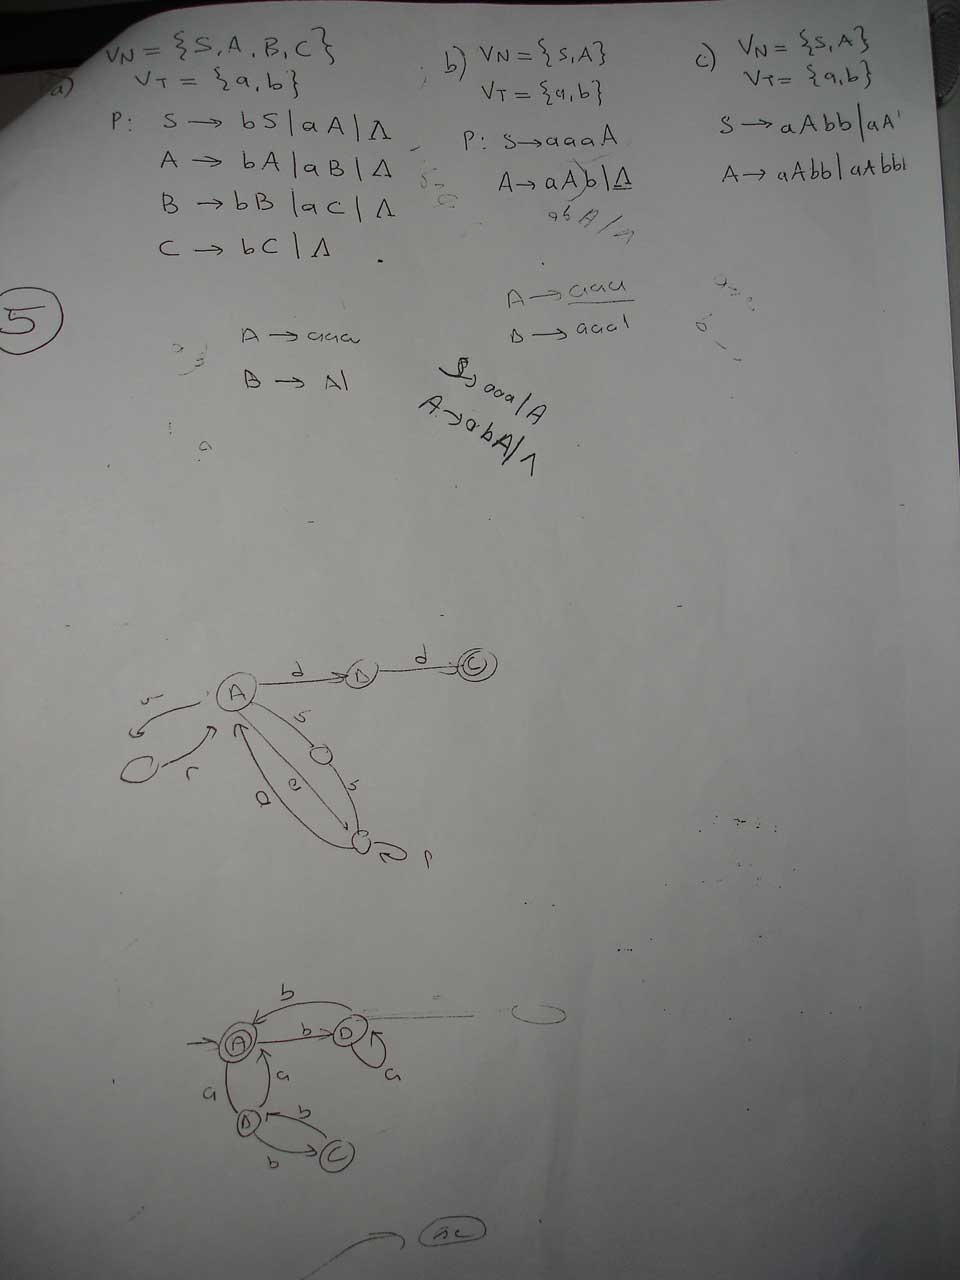 a)
V_N = {S, A, B, C}
V_T = {a, b}
P: S → bS | aA | Λ
A → bA | aB | Λ
B → bB | aC | Λ
C → bC | Λ
b) V_N = {S, A}
V_T = {a, b}
P: S → aaaA
A → aAb | Λ
abA /
c) V_N = {S, A}
V_T = {a, b}
S → aAbb | aA
A → aAbb | aAbb
5
A → aaa
B → A|
A → aaa
aaa
→ aaa / A
A → abA / Λ
a
A d d C
s
r
a
b
A b D
a a a
b
b C